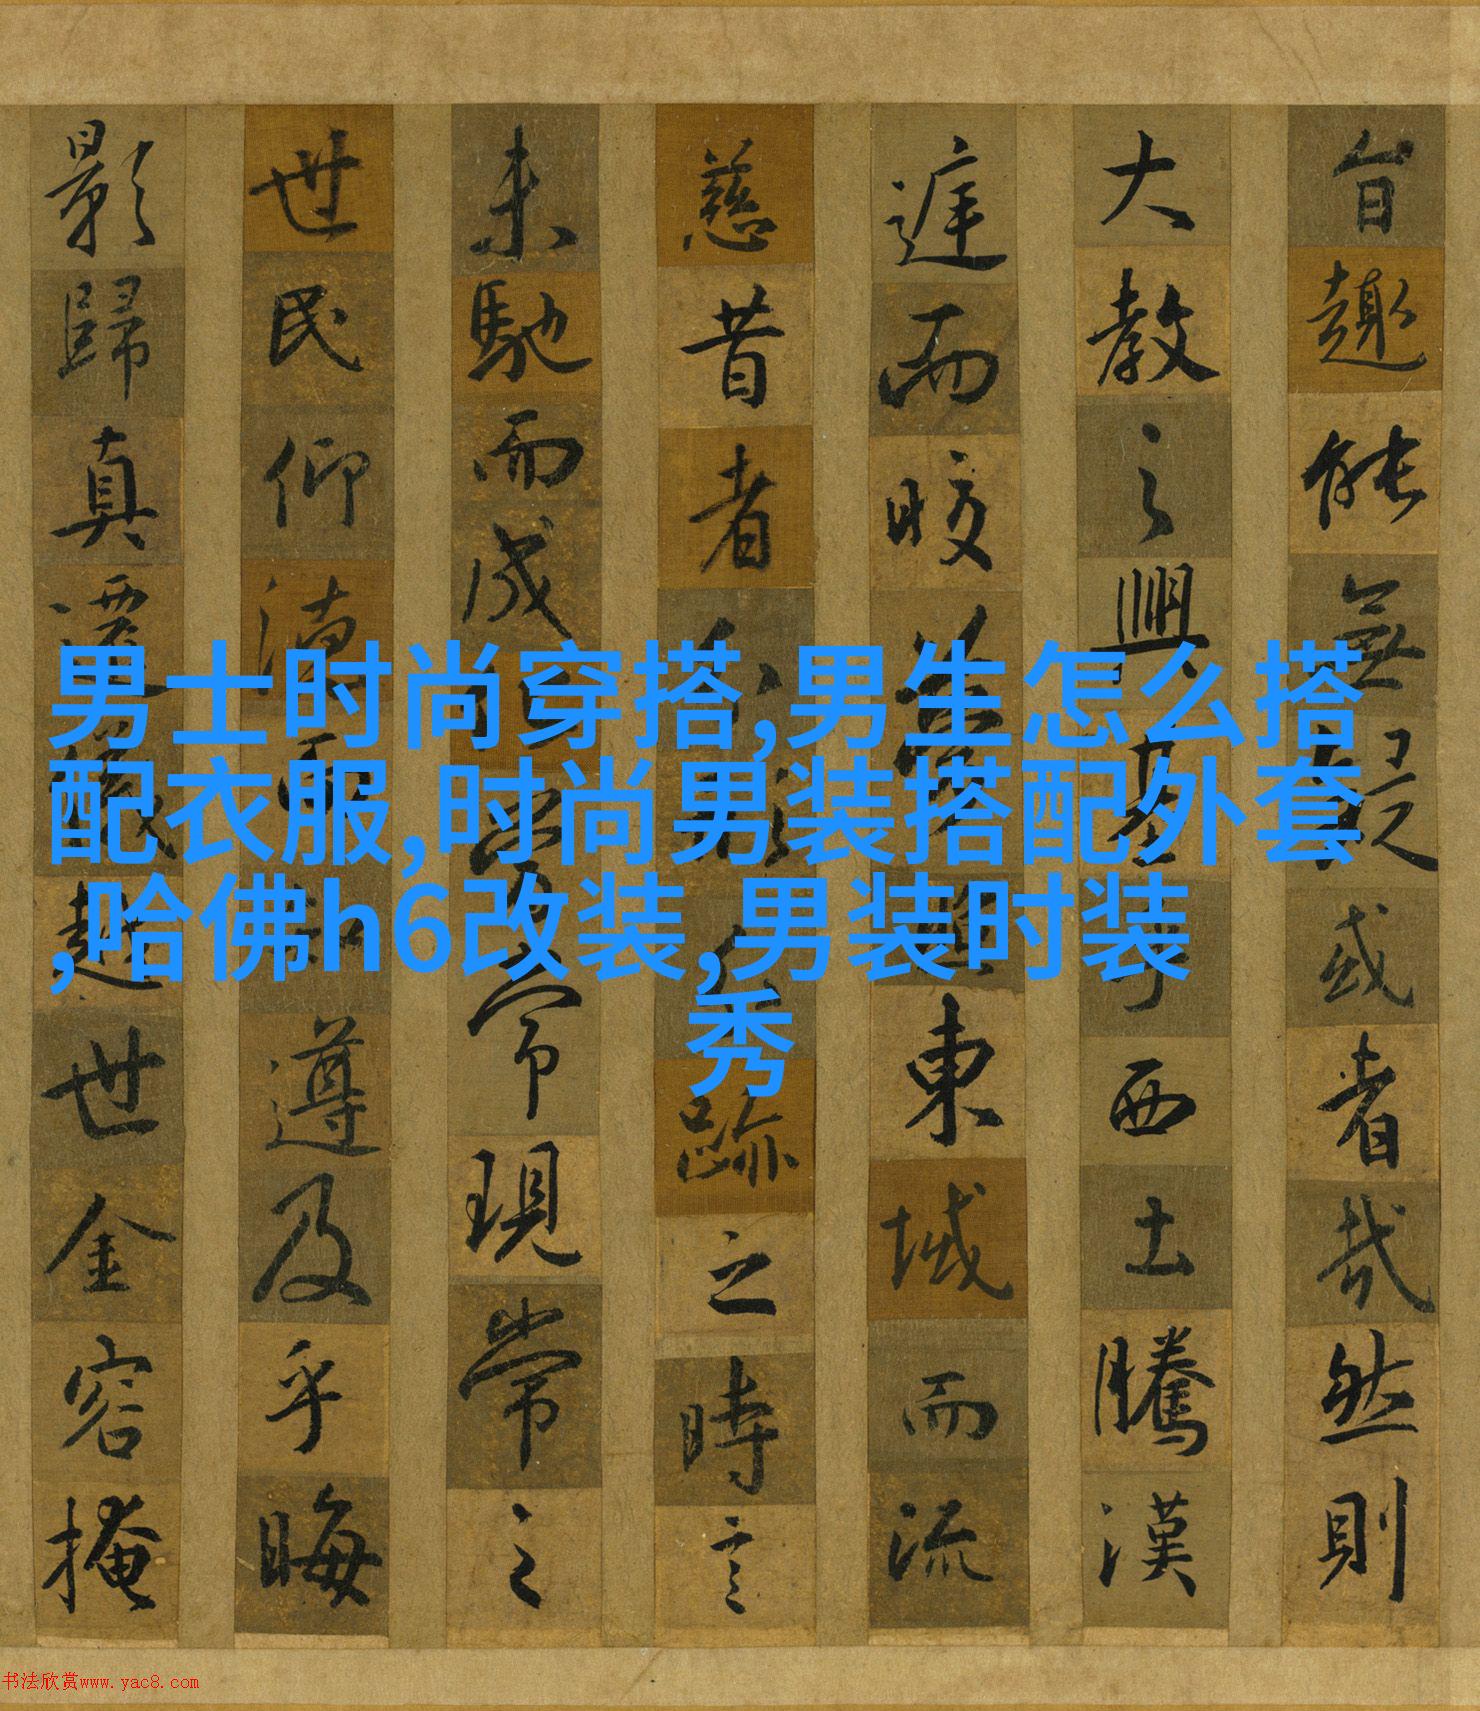 旨趣能無疑或者哉然則
大教之興基乎西土騰漢
庭而皎夢東域而流
慈昔者分形分跡之時言
未馳而成化當常現常之
世民仰德而知遵及乎晦
影歸真遷儀越世金容掩
男士时尚穿搭,男生怎么搭
配衣服,时尚男装搭配外套
,哈佛h6改装,男装时装
秀
书法欣赏www.yac8.com